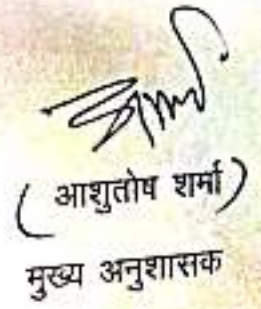 (आशुतोष शर्मा)
मुख्य अनुशासक